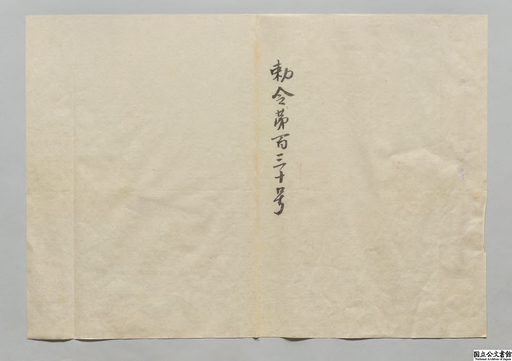 勅令第百三十号
国立公文書館
National Archives of Japan